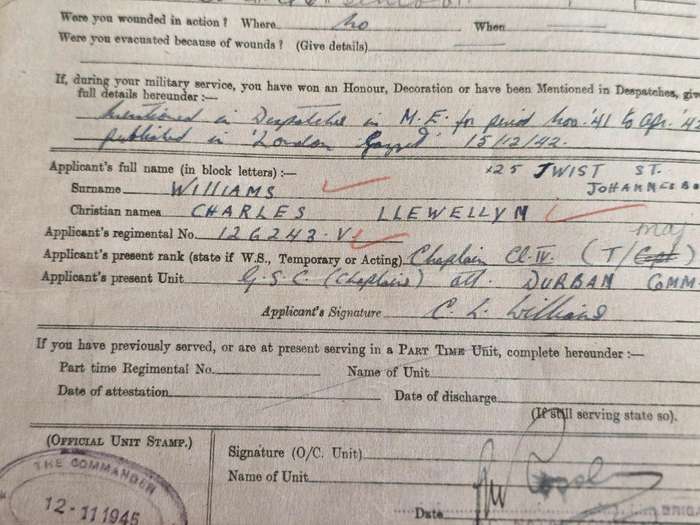 Were you wounded in action? Where No When
Were you evacuated because of wounds? (Give details)
If, during your military service, you have won an Honour, Decoration or have been Mentioned in Despatches, giv
full details hereunder :—
Mentioned in Despatches in M.E. for period Nov. '41 to Apr. '42
published in 'London Gazette' 15/12/42.
Applicant's full name (in block letters) :—
125 TWIST ST.
JOHANNESB
Surname WILLIAMS
Christian names CHARLES LLEWELLYN
Applicant's regimental No. 126243.V.
Maj
Applicant's present rank (state if W.S., Temporary or Acting) Chaplain Cl. IV. (T/Capt)
Applicant's present Unit G.S.C. (Chaplains) att. DURBAN COMM
Applicant's Signature C. L. Williams
If you have previously served, or are at present serving in a PART TIME UNIT, complete hereunder :—
Part time Regimental No. Name of Unit
Date of attestation Date of discharge
(If still serving state so).
(OFFICIAL UNIT STAMP.)
Signature (O/C. Unit)
Name of Unit
Date
THE COMMANDER
12-11 1945